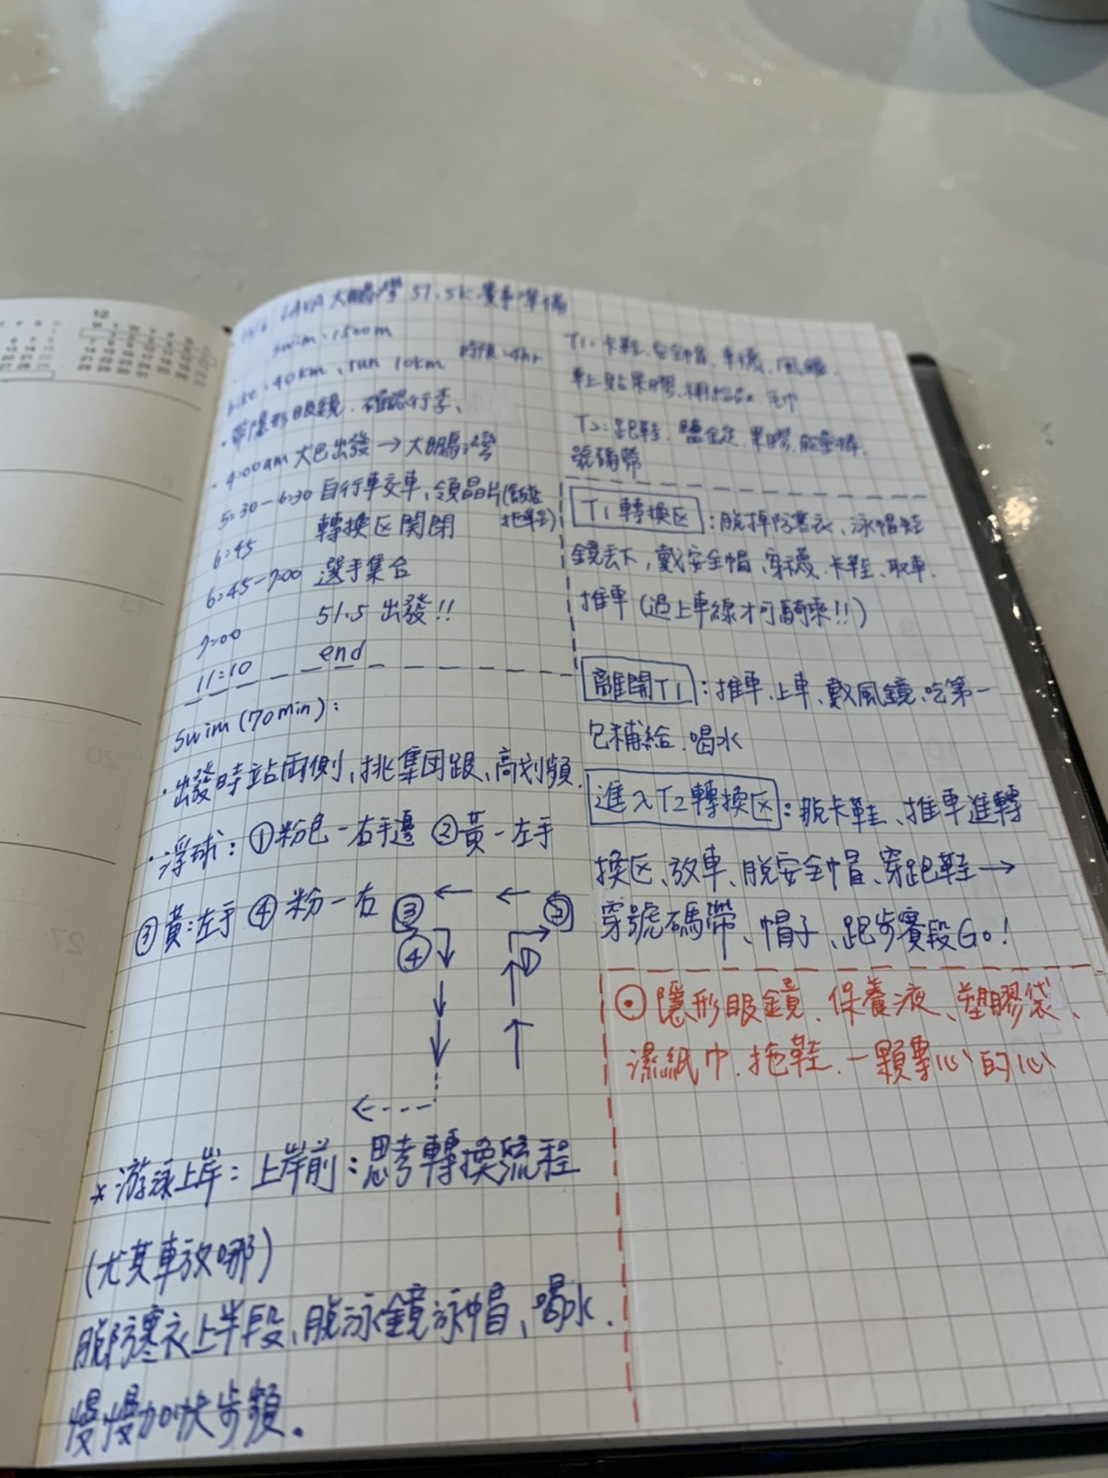 LAVA 大鵬灣 51.5k 賽事準備
swim:1500m
bike:40km、run 10km 時限:4hr
・帶隱形眼鏡、確認行李、
・4:00am 大巴出發→大鵬灣
5:30-6:30 自行車交車、領晶片
6:45 轉換区関閉
6:45-7:00 選手集合
7:00 51.5 出發!!
11:10 end
swim(70min):
・出發時站兩側、挑集団跟、高划頻.
・浮球:①粉色-右手邊 ②黃-左手
③黃:左手 ④粉-右
③
②
④
①
*游泳上岸:上岸前:思考轉換流程
(尤其車放哪)
脫防寒衣上半段、脫泳鏡泳帽、喝水.
慢慢加快步頻。
T1:卡鞋、安全帽、車襪、風鏡、
車上貼果膠、補給品、毛巾
T2:跑鞋、鹽錠、果膠、能量棒、
號碼帶
T1轉換区:脫掉防寒衣、泳帽蛙
鏡丟下,戴安全帽、穿襪、卡鞋、取車、
推車(過上車線才可騎乘!!)
離開T1:推車、上車、戴風鏡、吃第一
包補給、喝水
進入T2轉換区:脫卡鞋、推車進轉
換区、放車、脫安全帽、穿跑鞋→
穿號碼帶、帽子、跑步賽段Go!
⊙隱形眼鏡、保養液、塑膠袋、
濕紙巾、拖鞋、一顆專心的心
12